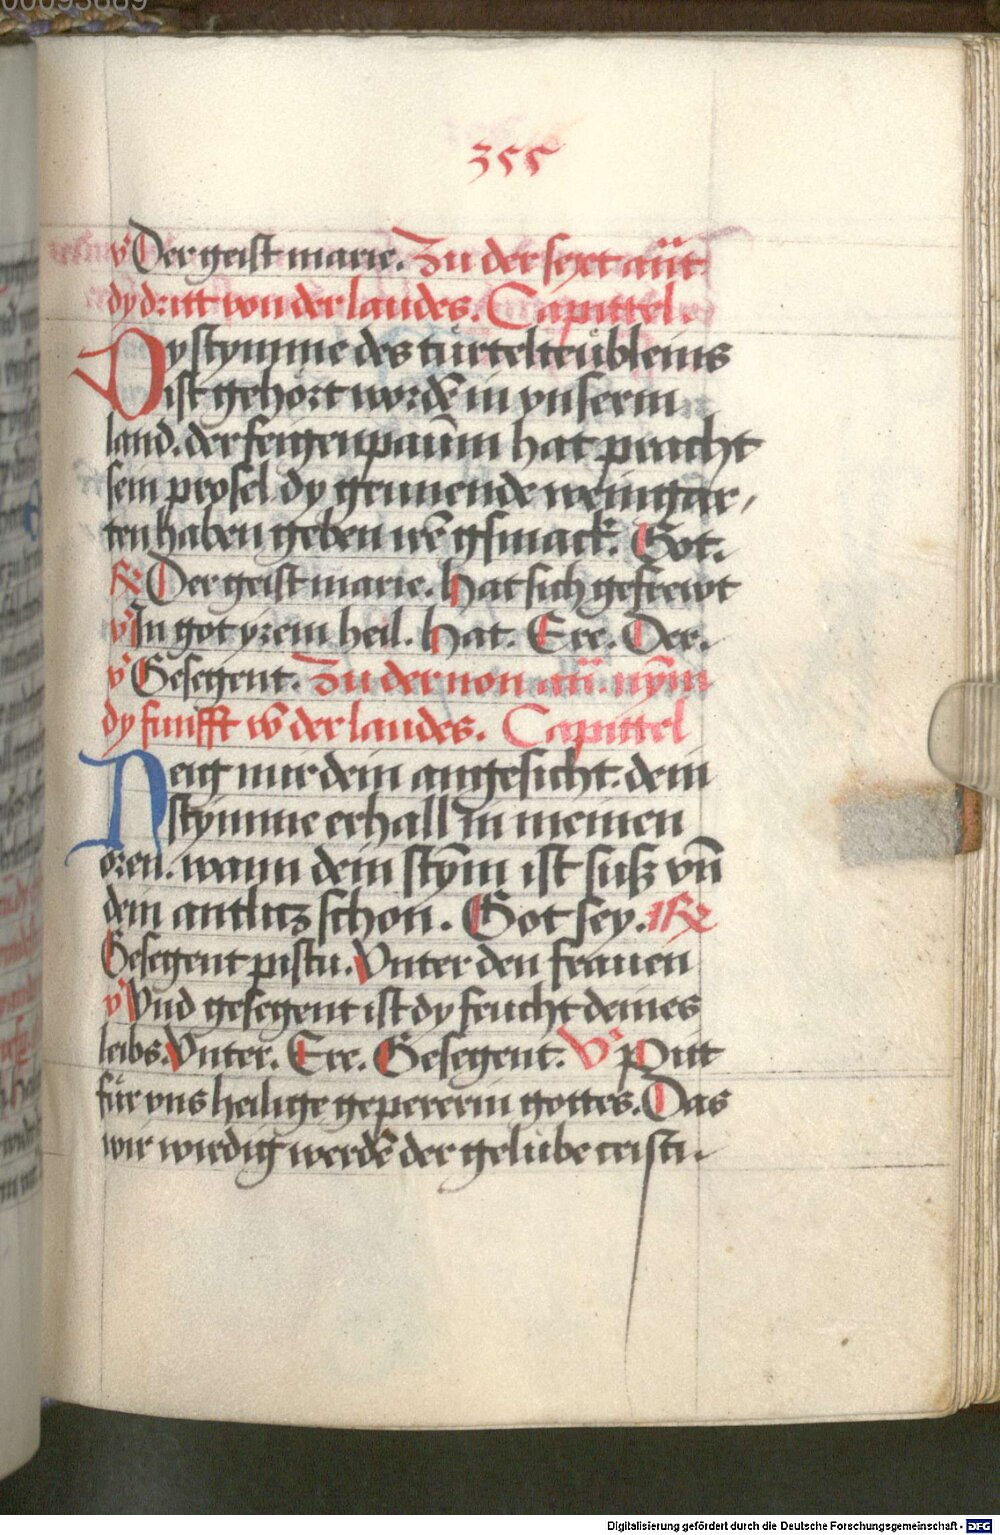 00093669
355
v Der geist marie. Zu der sext aut
dy dritt von der laudes. Capittel.
Dy stymme des türtelteübleins
ist gehört wordē in vnserm
land. der feigenpaum hat pracht
sein prosel dy grunende weingar,
ten haben geben irē gsmack. Got.
R Der geist marie. Hat sich gefrewt
v In got yrem heil. Hat. Ere. Der.
v Gesegent. Zu der non añ. nym
dy funfft vō der laudes. Capittel
Zeig mir dein angesicht. dein
stymme erhall in meinen
oren. wann dein stȳm ist suß vñ
dein antlitz schön. Got sey. R
Gesegent pistu. Vnter den frauen
v Vnd gesegent ist dy frucht deines
leibs. Vnter. Ere. Gesegent. V Pitt
für vns heilige gepererin gottes. Das
wir wirdig werdē der gelübe cristi.
Digitalisierung gefördert durch die Deutsche Forschungsgemeinschaft - DFG